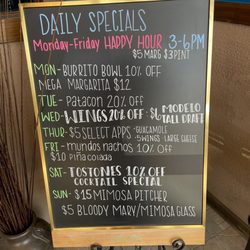 DAILY SPECIALS
Monday-Friday HAPPY HOUR 3-6PM
$5 MARG $3 PINT
MON- BURRITO BOWL 10% OFF
MEGA MARGARITA $12
TUE- PATACON 20% OFF
WED- WINGS 20% OFF - $6 MODELO TALL DRAFT
THUR- $5 SELECT APPS -GUACAMOLE
-5 WINGS -LARGE CHEESE
FRI- mundos nachos 10% OFF
$10 piña colada
SAT- TOSTONES 10% OFF
COCKTAIL SPECIAL
SUN- $15 MIMOSA PITCHER
$5 BLOODY MARY/MIMOSA GLASS